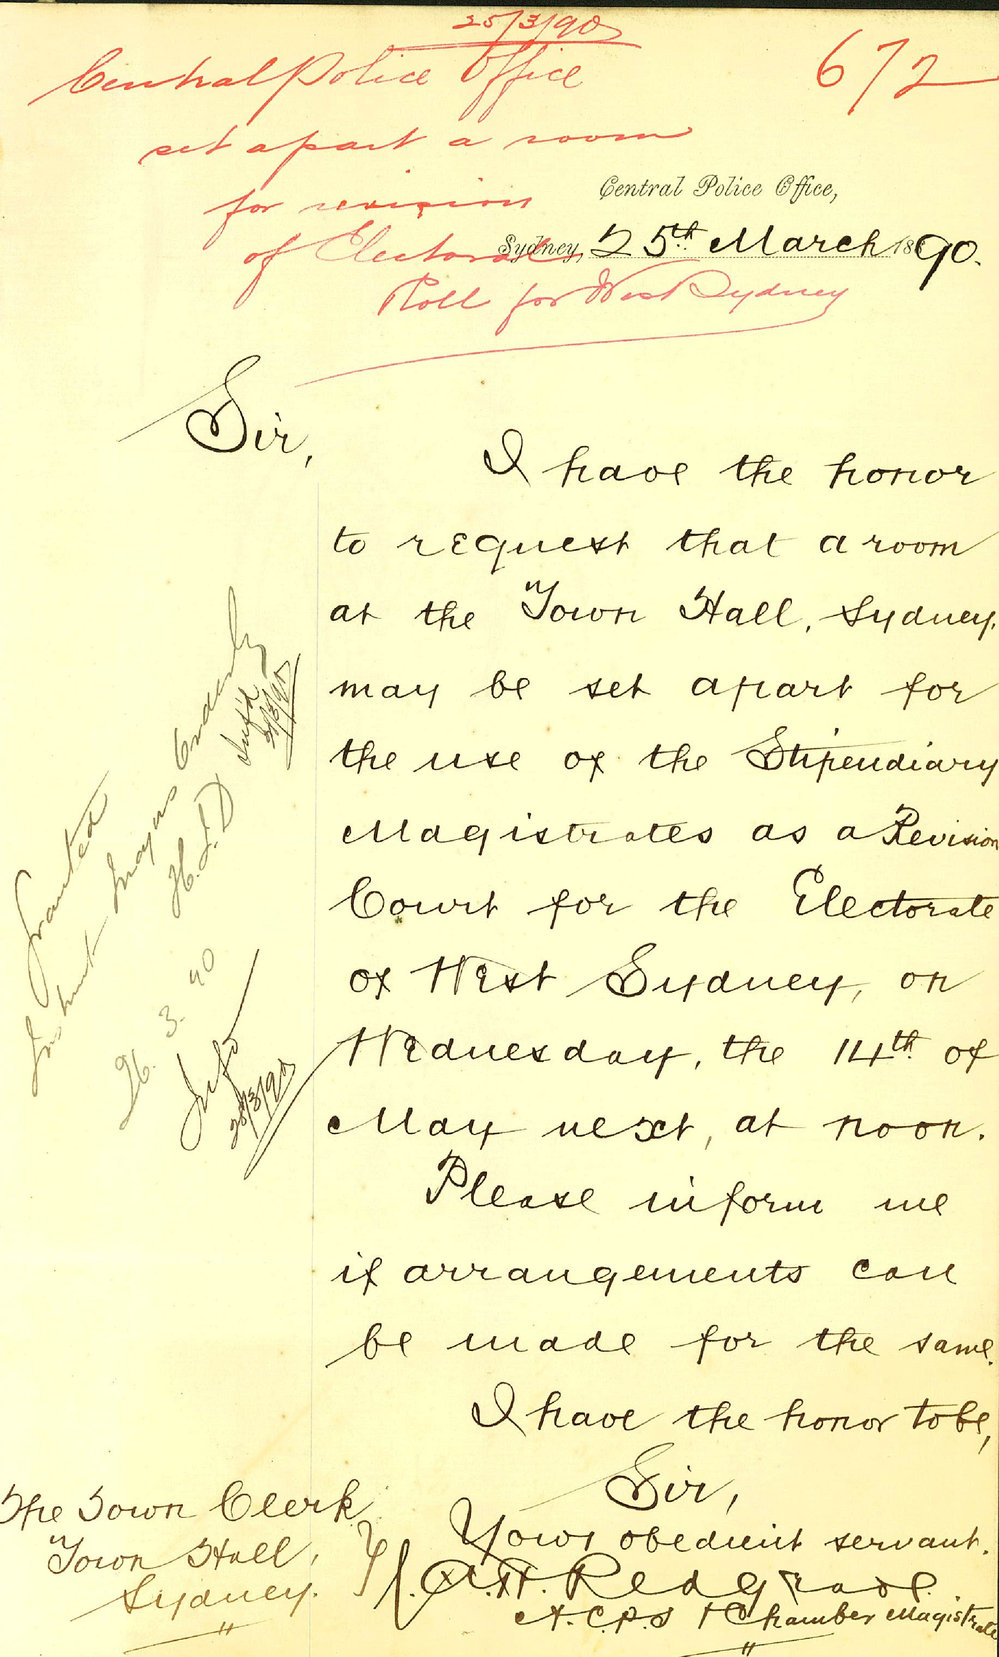 25/3/90
672
Central Police Office
set apart a room
for revision
of Electoral
Roll for West Sydney
Central Police Office,
Sydney, 25th March 1890.
Sir,
I have the honor
to request that a room
at the Town Hall, Sydney,
may be set apart for
the use of the Stipendiary
Magistrates as a Revision
Court for the Electorate
of West Sydney, on
Wednesday, the 14th of
May next, at noon.
Please inform me
if arrangements can
be made for the same.
I have the honor to be,
Sir,
Your obedient servant.
Redgrave.
A.C.P.S & Chamber Magistrate
The Town Clerk
Town Hall,
Sydney.
Granted
Instruct Mayors Orderly
26.3.90